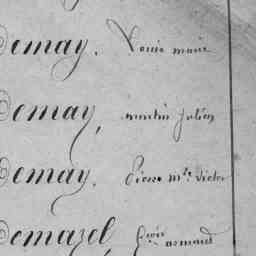 Demay, Louise marie
Demay, martin Julien
Demay, Pierre m.ie Victor
Demazel, armand